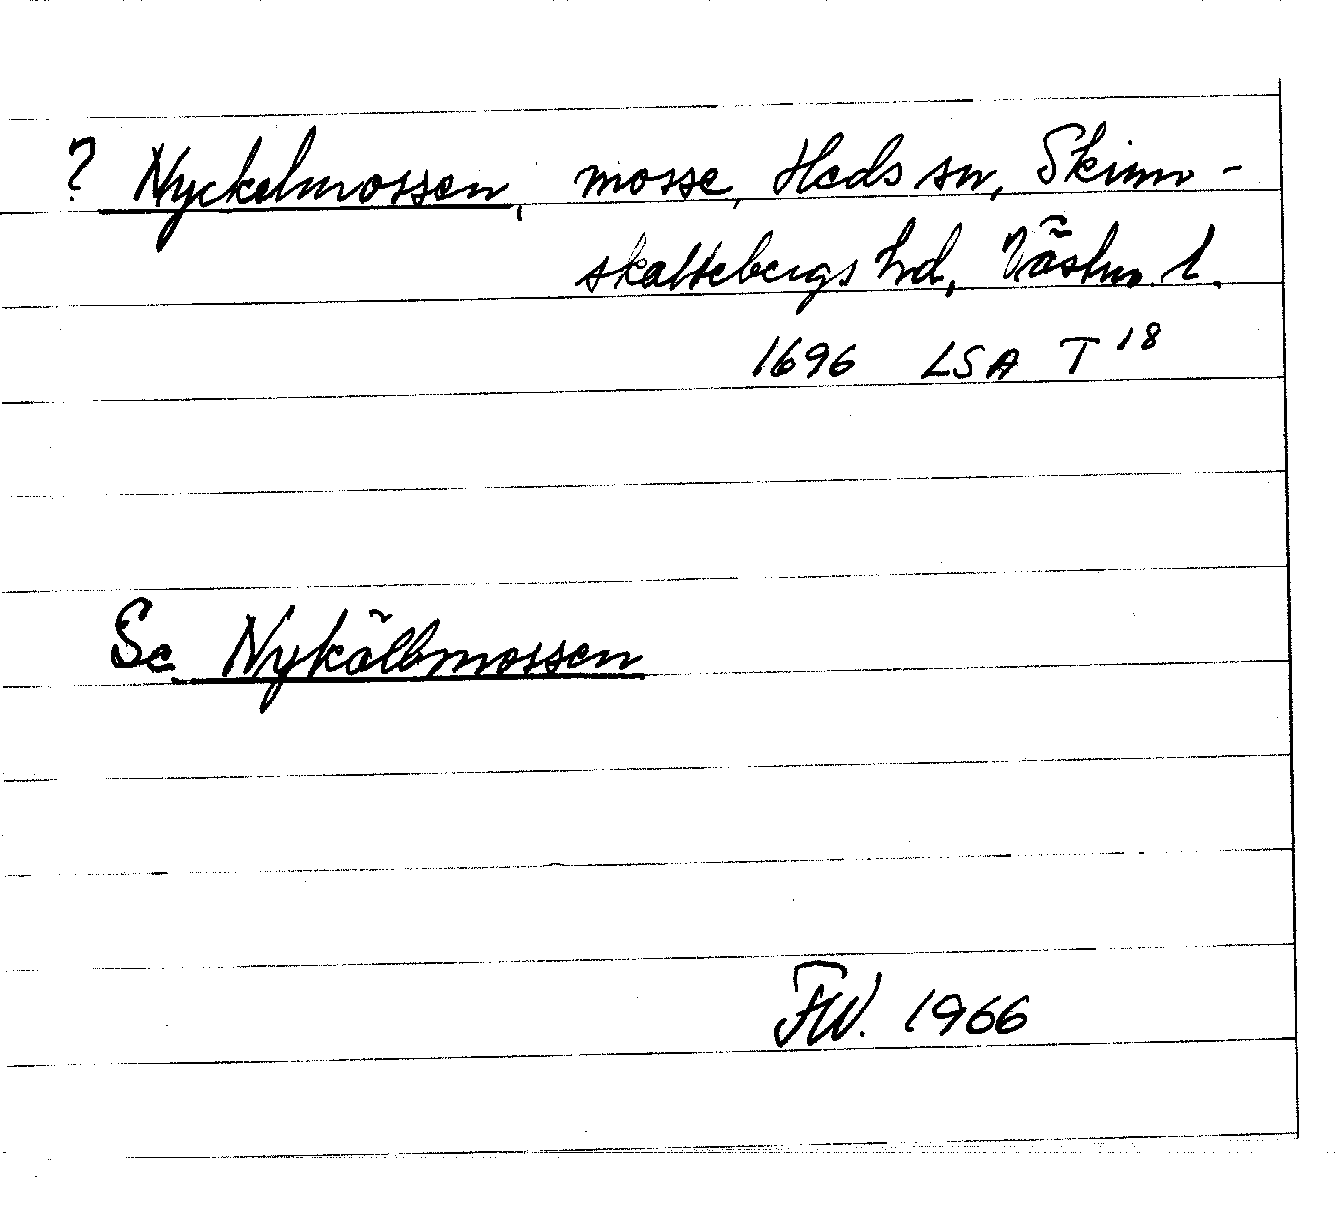 ? Nyckelmossen, mosse, Heds sn, Skinn-
skattebergs hd, Västm. l.
1696 LSA T 18
Se Nykälbmossen
FW. 1966